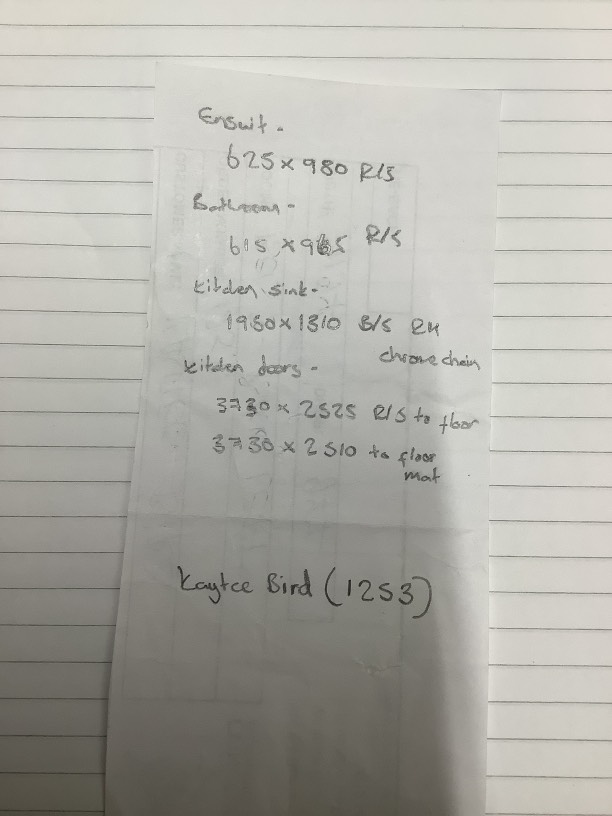 Ensuit -
625 x 980 R/S
Bathroom -
615 x 965 R/S
kitchen sink -
x 1310 B/S RH
chrome chain
kitchen doors -
3730 x 2525 R/S to floor
3730 x 2510 to floor
mat
Kaytee Bird (1253)